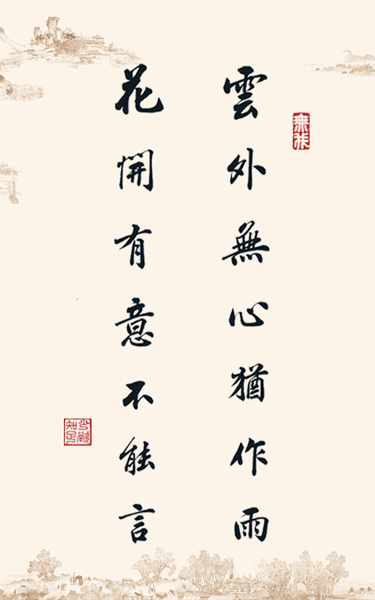 雲外無心猶作雨
花開有意不能言